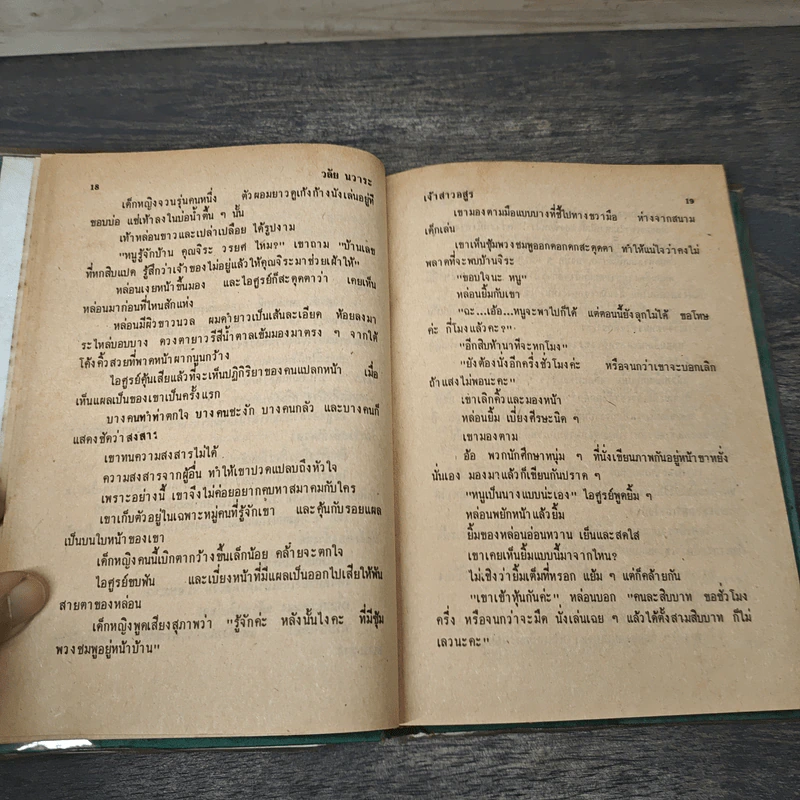 18
วลัย นวาระ
เด็กหญิงจวนรุ่นคนหนึ่ง ตัวผอมยาวดูเก้งก้างนั่งเล่นอยู่ที่
ขอบบ่อ แช่เท้าลงในบ่อน้ำตื้น ๆ นั้น
เท้าหล่อนขาวและเปล่าเปลือย ได้รูปงาม
"หนูรู้จักบ้าน คุณจิระ วรยศ ไหม?" เขาถาม "บ้านเลข
ที่หกสิบแปด รู้สึกว่าเจ้าของไม่อยู่แล้วให้คุณจิระมาช่วยเฝ้าให้"
หล่อนเงยหน้าขึ้นมอง และไอศูรย์ก็สะดุดตาว่า เคยเห็น
หล่อนมาก่อนที่ไหนสักแห่ง
หล่อนมีผิวขาวนวล ผมดำยาวเป็นเส้นละเอียด ห้อยลงมา
ระไหล่บอบบาง ดวงตายาวรีสีน้ำตาลเข้มมองมาตรง ๆ จากใต้
โค้งคิ้วสวยที่พาดหน้าผากนูนกว้าง
ไอศูรย์คุ้นเสียแล้วที่จะเห็นปฏิกิริยาของคนแปลกหน้า เมื่อ
เห็นแผลเป็นของเขาเป็นครั้งแรก
บางคนทำท่าตกใจ บางคนชะงัก บางคนกลัว และบางคนก็
แสดงชัดว่าสงสาร
เขาทนความสงสารไม่ได้
ความสงสารจากผู้อื่น ทำให้เขาปวดแปลบถึงหัวใจ
เพราะอย่างนี้ เขาจึงไม่ค่อยอยากคบหาสมาคมกับใคร
เขาเก็บตัวอยู่ในเฉพาะหมู่คนที่รู้จักเขา และคุ้นกับรอยแผล
เป็นบนใบหน้าของเขา
เด็กหญิงคนนี้เบิกตากว้างขึ้นเล็กน้อย คล้ายจะตกใจ
ไอศูรย์ขบฟัน และเบี่ยงหน้าที่มีแผลเป็นออกไปเสียให้พ้น
สายตาของหล่อน
เด็กหญิงพูดเสียงสุภาพว่า "รู้จักค่ะ หลังนั้นไงคะ ที่มีซุ้ม
พวงชมพูอยู่หน้าบ้าน"
เจ้าสาวอสูร
19
เขามองตามมือแบบบางที่ชี้ไปทางขวามือ ห่างจากสนาม
เด็กเล่น
เขาเห็นซุ้มพวงชมพูออกดอกดกสะดุดตา ทำให้แน่ใจว่าคงไม่
พลาดที่จะพบบ้านจิระ
"ขอบใจนะ หนู"
หล่อนยิ้มกับเขา
"ฉะ...เอ้อ...หนูจะพาไปก็ได้ แต่ตอนนี้ยังลุกไม่ได้ ขอโทษ
ค่ะ กี่โมงแล้วคะ?"
"อีกสิบห้านาทีจะหกโมง"
"ยังต้องนั่งอีกครึ่งชั่วโมงค่ะ หรือจนกว่าเขาจะบอกเลิก
ถ้าแสงไม่พอนะคะ"
เขาเลิกคิ้วและมองหน้า
หล่อนยิ้ม เบี่ยงศีรษะนิด ๆ
เขามองตาม
อ้อ พวกนักศึกษาหนุ่ม ๆ ที่นั่งเขียนภาพกันอยู่หน้าขาหยั่ง
นั่นเอง มองมาแล้วก็เขียนกันปราด ๆ
"หนูเป็นนางแบบน่ะเอง" ไอศูรย์พูดยิ้ม ๆ
หล่อนพยักหน้าแล้วยิ้ม
ยิ้มของหล่อนอ่อนหวาน เย็นและสดใส
เขาเคยเห็นยิ้มแบบนี้มาจากไหน?
ไม่เชิงว่ายิ้มเต็มที่หรอก แย้ม ๆ แต่ก็คล้ายกัน
"เขาเข้าหุ้นกันค่ะ" หล่อนบอก "คนละสิบบาท ขอชั่วโมง
ครึ่ง หรือจนกว่าจะมืด นั่งเล่นเฉย ๆ แล้วได้ตั้งสามสิบบาท ก็ไม่
เลวนะคะ"